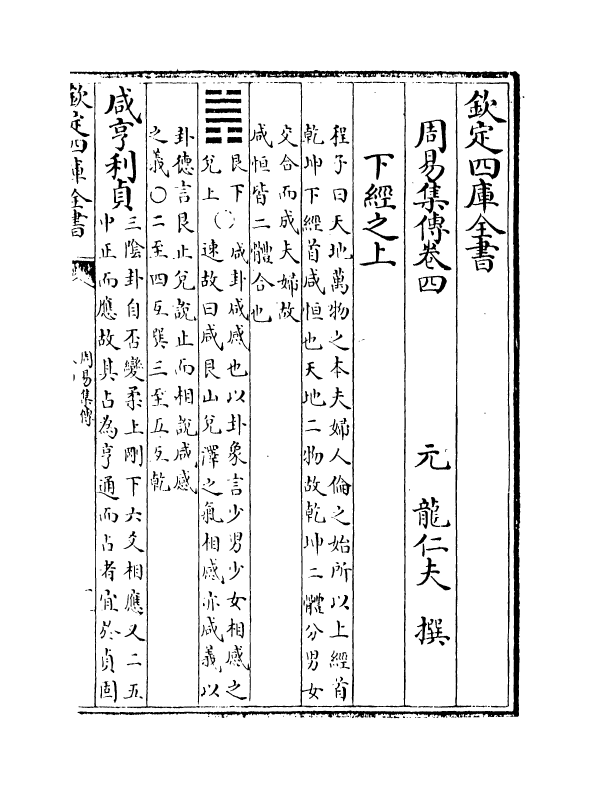 欽定四庫全書
周易集傳卷四
元 龍仁夫 撰
下經之上
程子曰天地萬物之本夫婦人倫之始所以上經首
乾坤下經首咸恒也天地二物故乾坤二體分男女
交合而成夫婦故
咸恒皆二體合也
䷞
艮下
兌上
〇
咸卦咸感也以卦象言少男少女相感之
速故曰咸艮山兌澤之氣相感亦咸義以
卦德言艮止兌說止而相說咸感
之義〇二至四互巽三至五互乾
咸亨利貞
三陰卦自否變柔上剛下六爻相應又二五
中正而應故其占為亨通而占者宜於貞固
欽定四庫全書
周易集傳